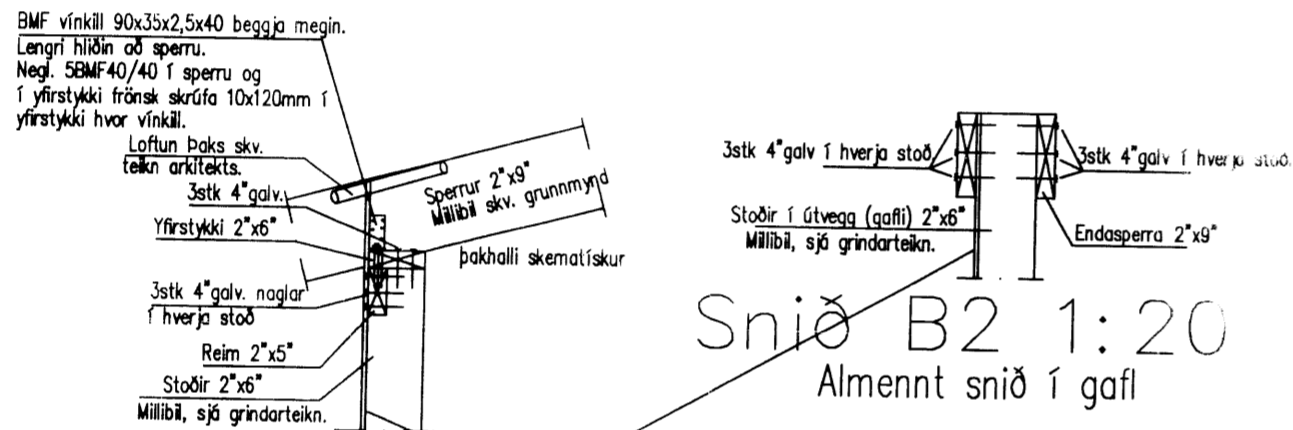 BMF vínkill 90x35x2,5x40 beggja megin.
Lengri hliðin að sperru.
Negl. 5BMF40/40 í sperru og
í yfirstykki frönsk skrúfa 10x120mm í
yfirstykki hvor vínkill.
Loftun Þaks skv.
teikn arkitekts.
3stk 4"galv.
Yfirstykki 2"x6"
3stk 4"galv. naglar
í hverja stoð
Reim 2"x5"
Stoðir 2"x6"
Millibil, sjá grindarteikn.
Sperrur 2"x9"
Millibil skv. grunnmynd
þakhalli skematískur
3stk 4"galv í hverja stoð
3stk 4"galv í hverja stoð.
Stoðir í útvegg (gafli) 2"x6"
Millibil, sjá grindarteikn.
Endasperra 2"x9"
Snið B2 1:20
Almennt snið í gafl